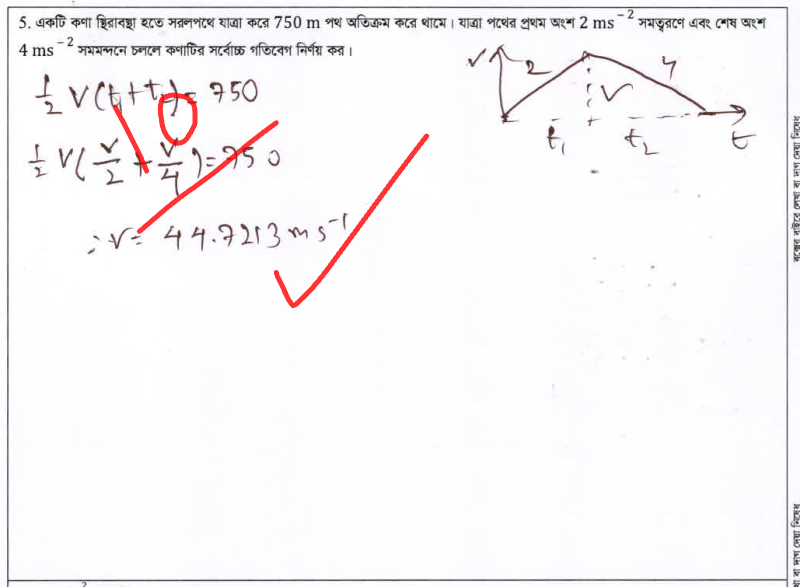 5. একটি কণা স্থিরাবস্থা হতে সরলপথে যাত্রা করে 750 m পথ অতিক্রম করে থামে। যাত্রা পথের প্রথম অংশ 2 ms⁻² সমত্বরণে এবং শেষ অংশ
4 ms⁻² সমমন্দনে চললে কণাটির সর্বোচ্চ গতিবেগ নির্ণয় কর।
V 2 4
V
t₁ t₂ t
½ V(t₁+t₂) = 750
½ V(V/2 + V/4) = 750
∴ V = 44.7213 ms⁻¹
10
বক্সের বাইরে লেখা বা দাগ দেয়া নিষেধ
বা দাগ দেয়া নিষেধ